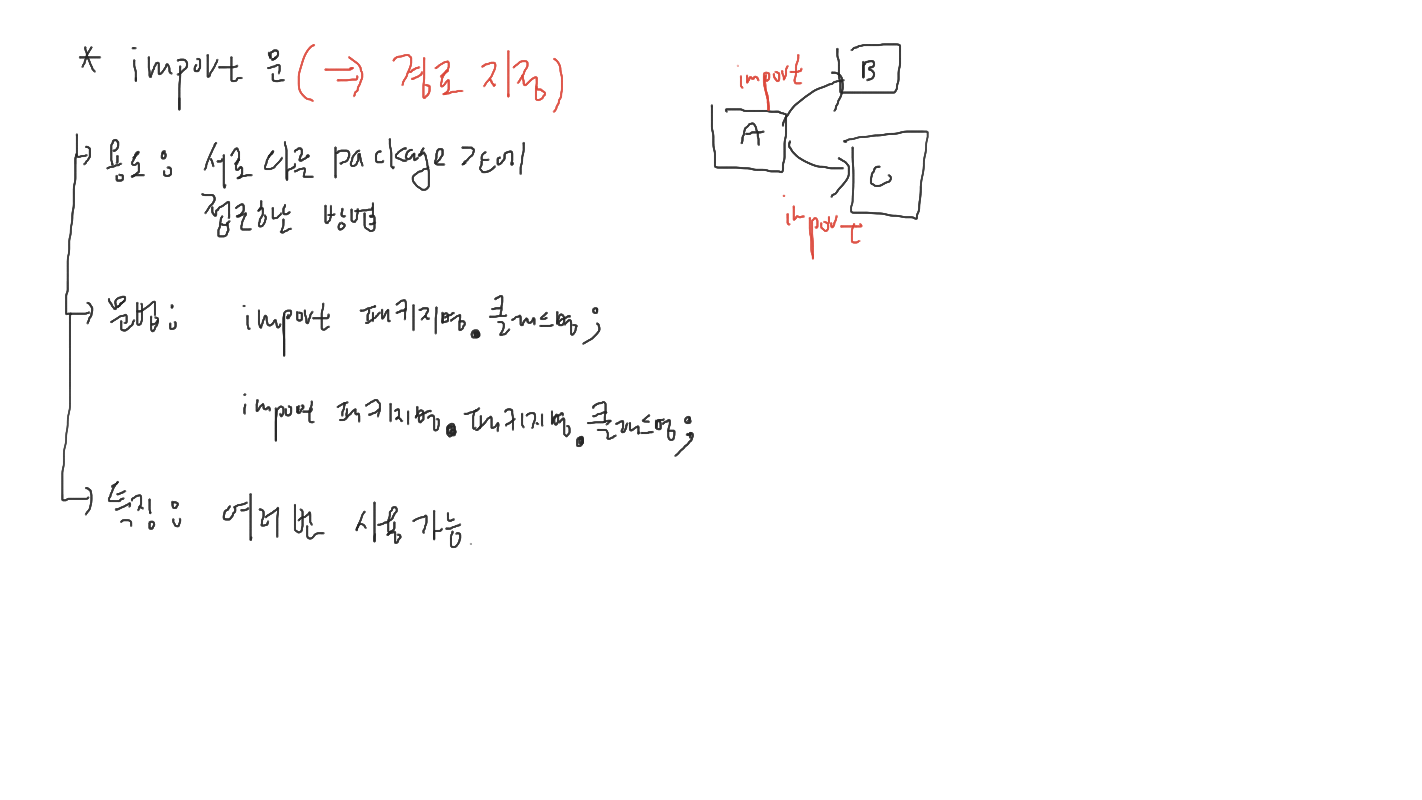 * import 문 (⇒ 경로 지정)
용도 : 서로 다른 package 간에
접근하는 방법
문법 : import 패키지명.클래스명;
import 패키지명.패키지명.클래스명;
특징 : 여러번 사용 가능
import
A
B
C
import